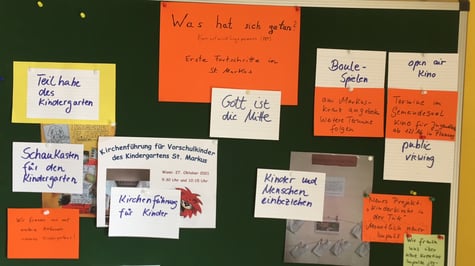 Was hat sich getan?
Erste Fortschritte in
St. Markus
Teilhabe
des
Kindergarten
Gott ist
die Mitte
Boule-
Spielen
am Markus-
weitere Termine
folgen
open air
Kino
Termine im
Gemeindesaal
Kino für
public
viewing
Schaukasten
für den
Kindergarten
Kirchenführung für Vorschulkinder
des Kindergartens St. Markus
Wann: 27. Oktober 2021
9:30 Uhr und 10:15 Uhr
Kirchenführung
für Kinder
Kinder und
Menschen
einbeziehen
Wir freuen uns auf
weitere Aktionen
unseres Kindergartens!
Neues Projekt
"Kinderkirche in
der Tüte"
Monatlich neuer
Impuls
Wir freuen
uns über